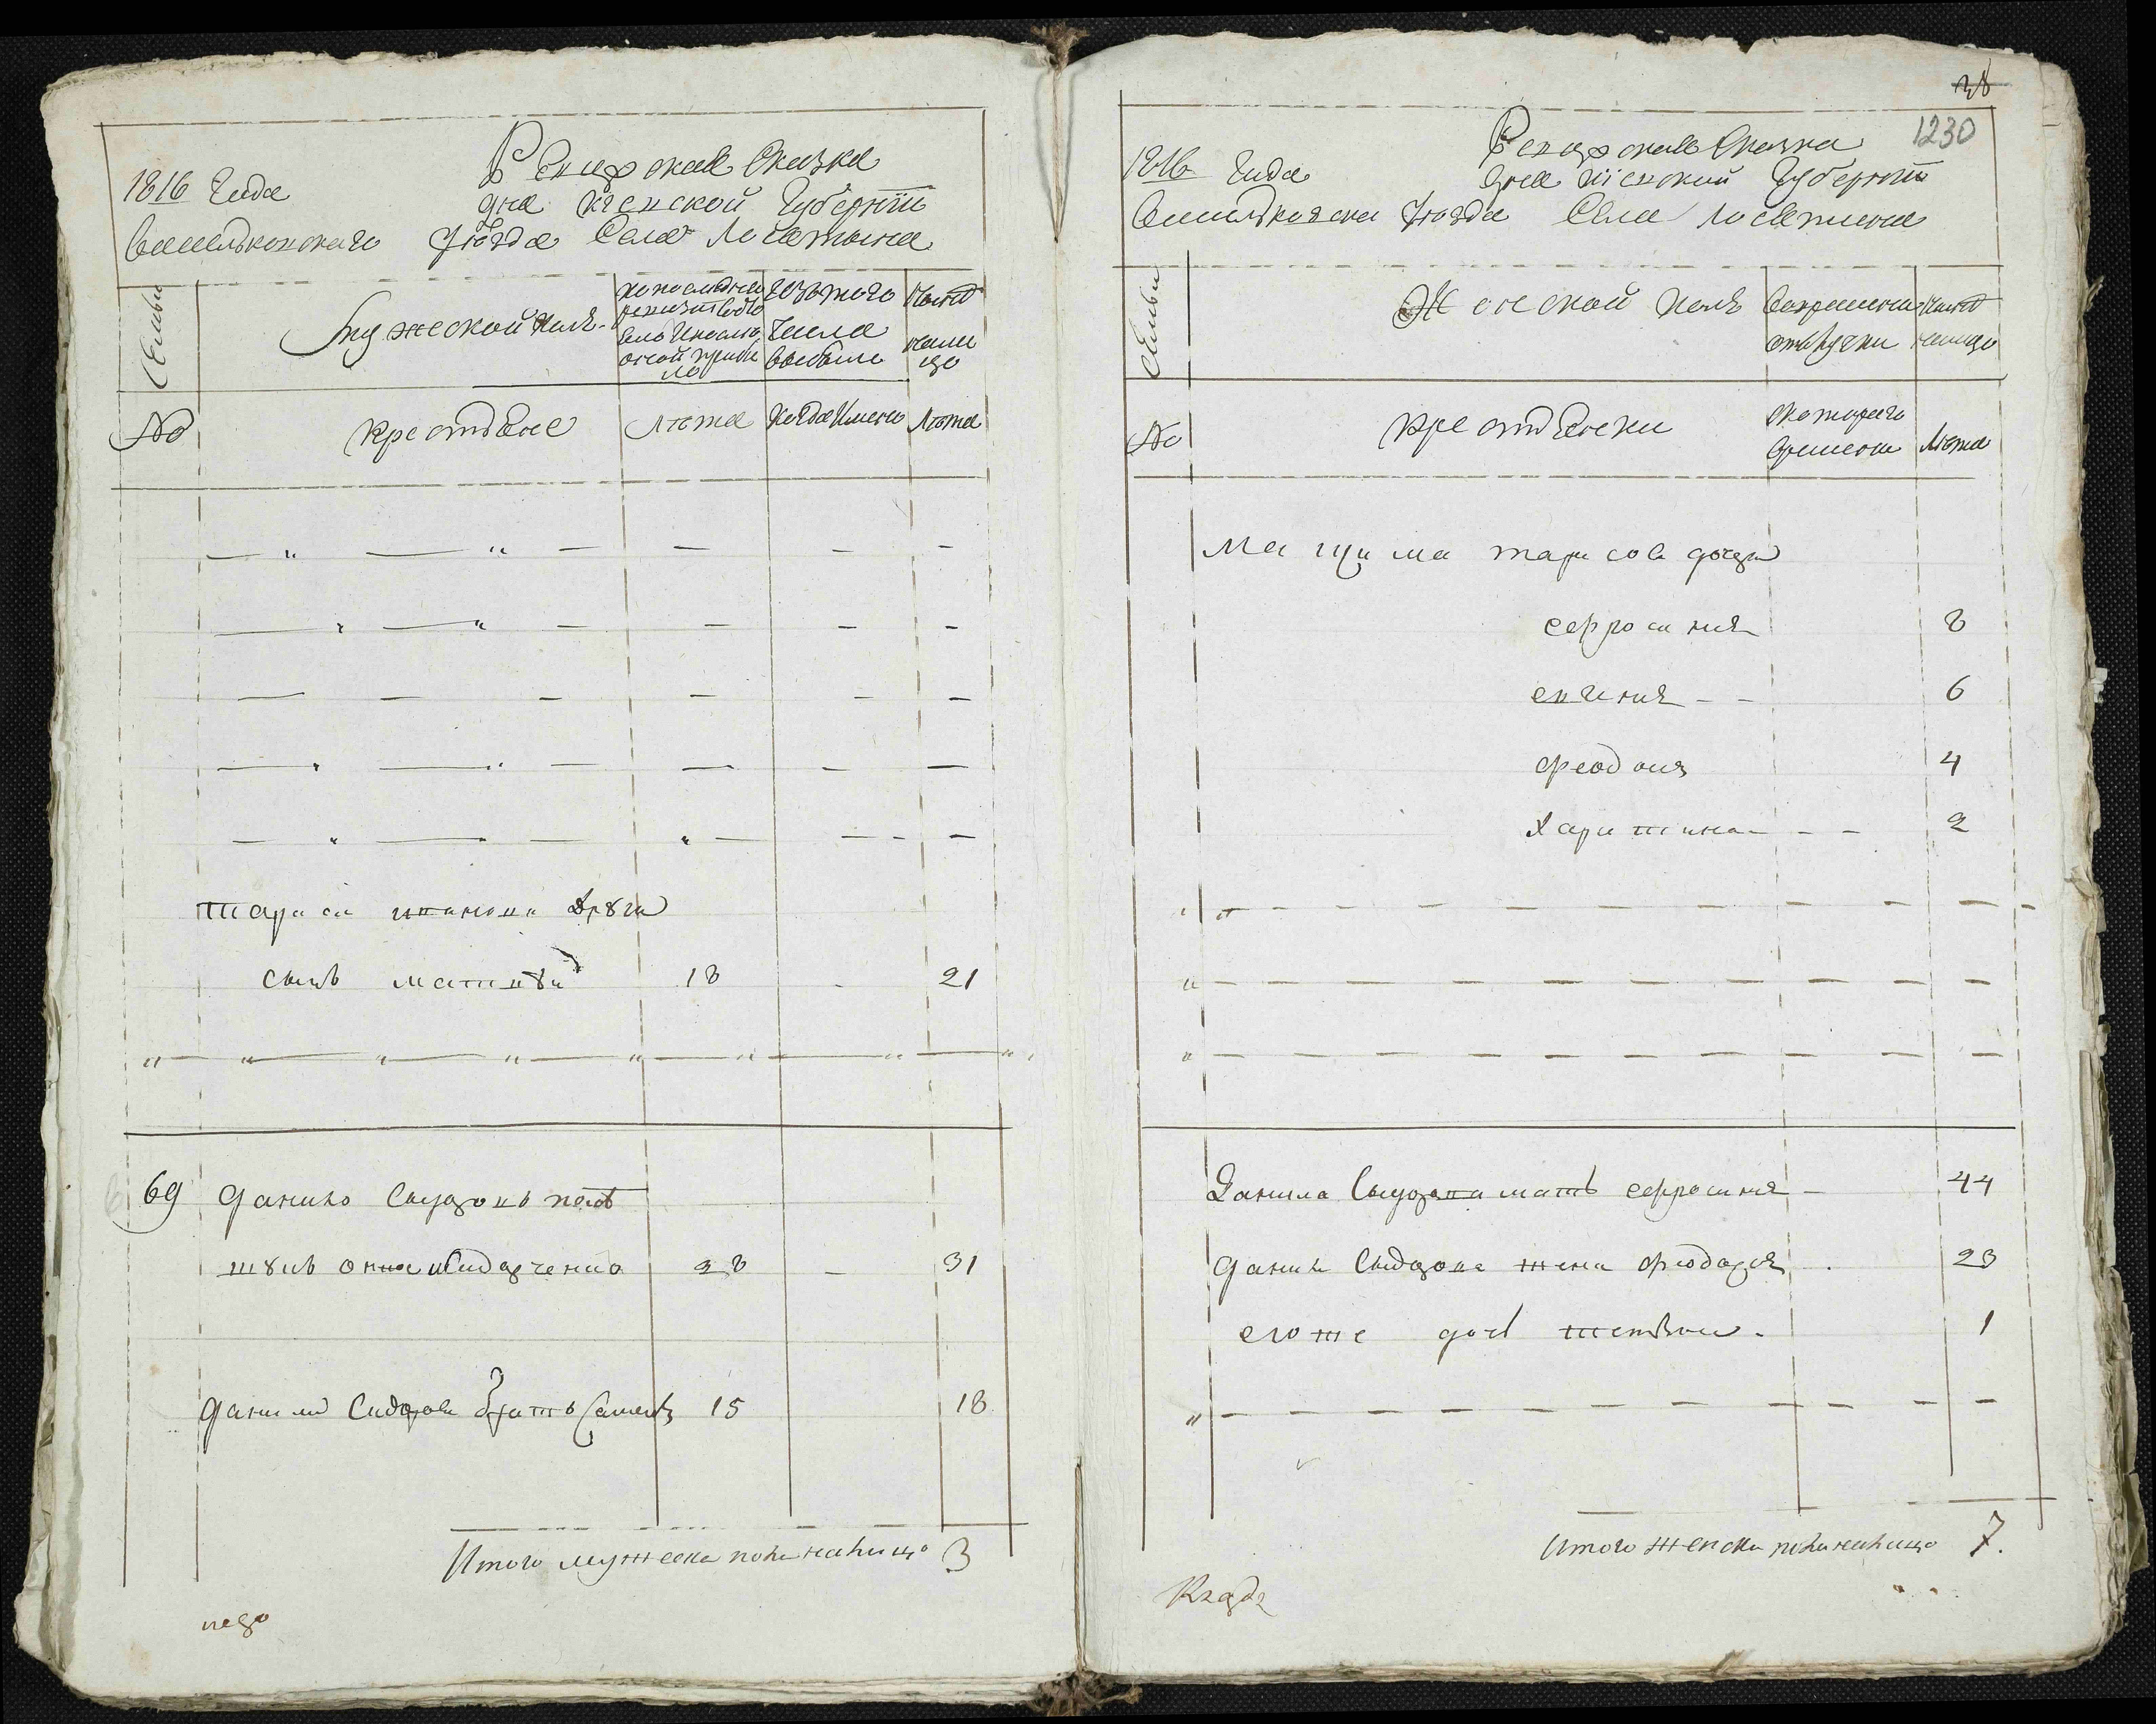 1816 Года
Ревизская Сказка
дня Киевской Губернїи
Васильковскаго уѣзда Села Лосятина
Семьи
Мужеской полъ
по последней ревизїи состо
яло и после
оной прибы
ло
Изъ того
числа
выбыло
Ныне
на ли
цо
№
крестьяне
Лѣта
когда именно
Лѣта
тараса иванова другой
сынъ матвѣй 18 21
69 данило Сидоровъ
28 31
данила Сидорова братъ Саменъ 15 18
Итого мужеска пола налицо 3
38
1230
1816 Года
Ревизская Сказка
дня Кїевской Губернїи
Васильковска уѣзда Села Лосятина
Семьи
Женской полъ
Вовременной
отлучки
Ныне
налицо
№
крестьянки
скотораго
времени
Лѣта
тарасова дочери
ефросиния 8
евгения 6
феодосия 4
Харитина 2
Данила Сидорова мать ефросиния 44
данила Сидорова жена феодория 23
его же дочь 1
Итого женска пола налицо 7.